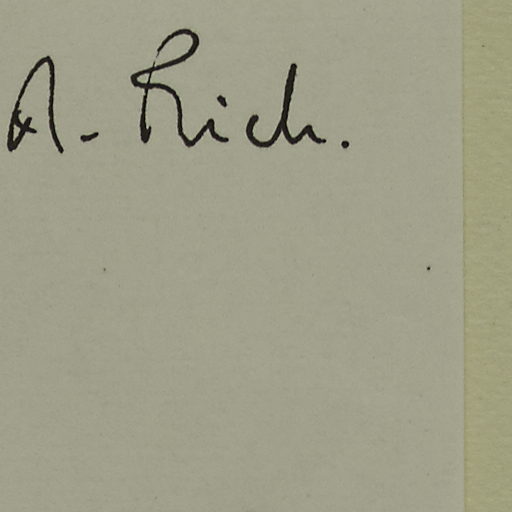 A. Rich.